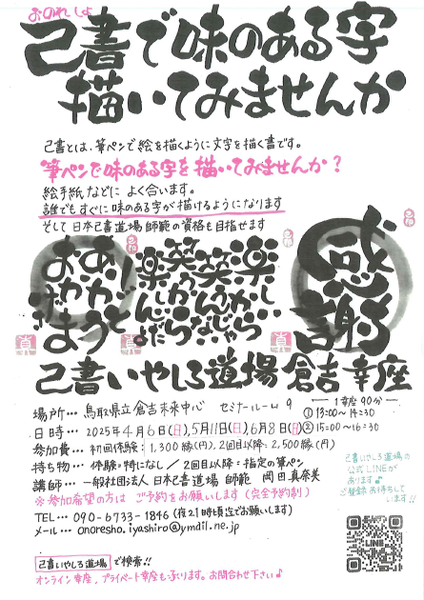 おのれしょ
己書で味のある字
描いてみませんか
己書とは、筆ペンで絵を描くように文字を描く書です。
筆ペンで味のある字を描いてみませんか？
絵手紙などに よく合います。
誰でもすぐに味のある字が描けるようになります
そして日本己書道場師範の資格も目指せます
ありがとう
おかげさま
楽しいから
笑うんじゃない
笑うから
楽しいんだよ
感謝
己書いやしろ道場 倉吉幸座
場所… 鳥取県立倉吉未来中心 セミナールーム9
日時… 2025年4月6日(日),5月11日(日),6月8日(日)
1幸座 90分
①13:00〜14:30
②15:00〜16:30
参加費… 初回体験:1,300縁(円),2回目以降:2,500縁(円)
持ち物… 体験:特になし/2回目以降:指定の筆ペン
講師… 一般社団法人 日本己書道場 師範 岡田真奈美
※参加希望の方は ご予約をお願いします(完全予約制)
TEL… 090-6733-1846(夜21時頃迄でお願いします)
メール… onoresho.iyashiro@ymail.ne.jp
己書いやしろ道場の
公式LINEが
あります♪
ご登録お待ちして
います!!
LINE
己書いやしろ道場 で検索!!
オンライン幸座,プライベート幸座も承ります。お問合わせ下さい♪